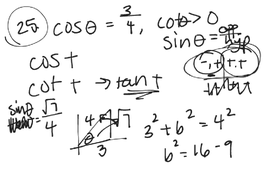 25) cosθ = 3/4, cotθ > 0
sinθ = opp/hyp
cost
cot t → tan t
-,+ +,+
sinθ = √7/4
4 √7
θ
3
3² + b² = 4²
b² = 16 - 9